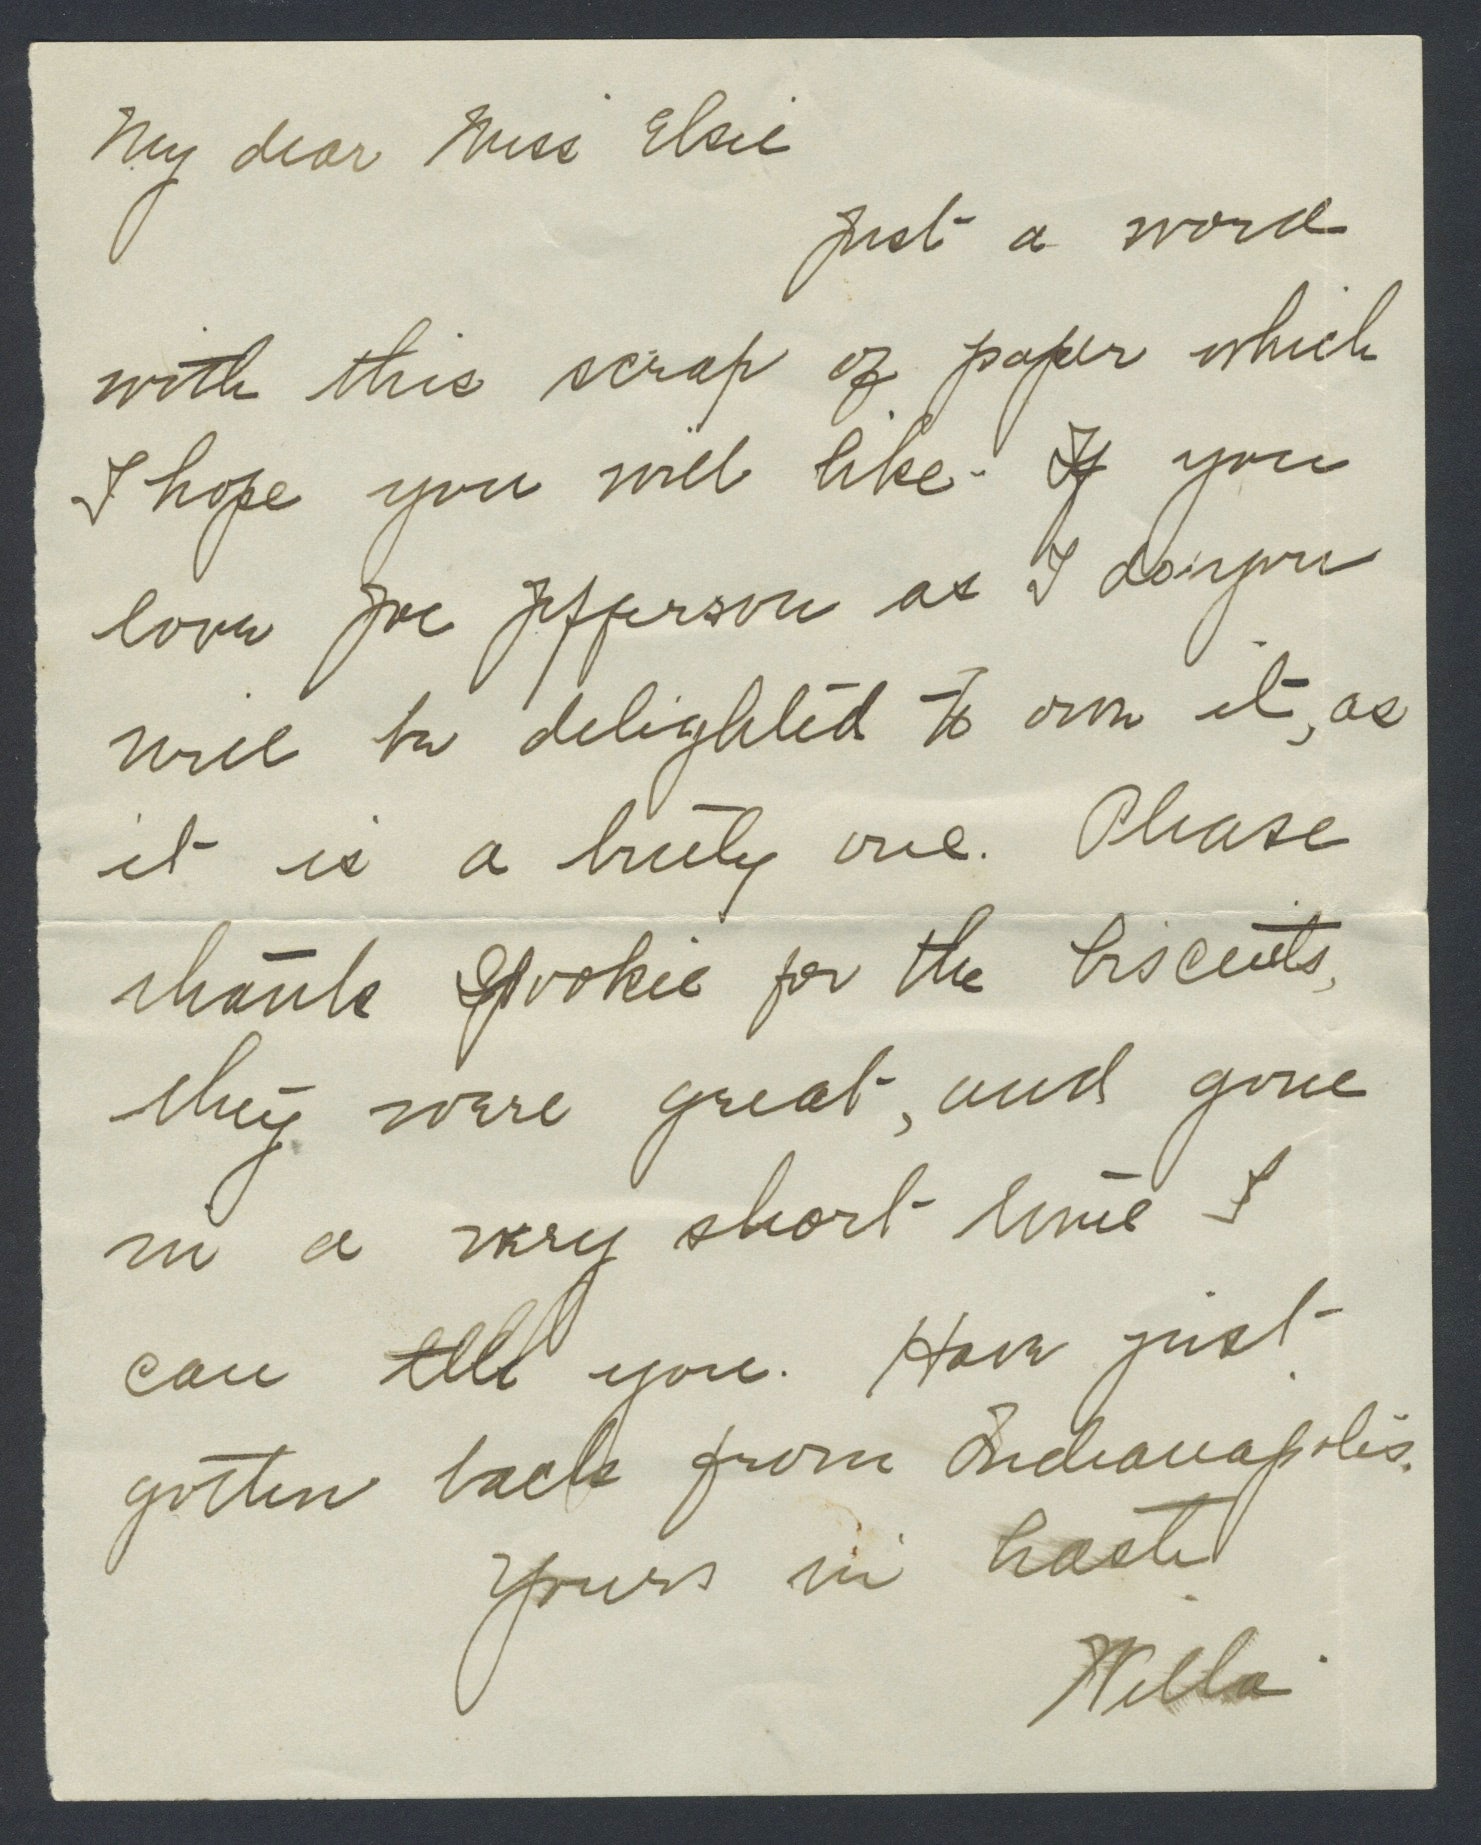 My dear Miss Elsie
Just a word
with this scrap of paper which
I hope you will like. If you
love Joe Jefferson as I do you
will be delighted to own it, as
it is a truly one. Please
thank Spookie for the biscuits,
they were great, and gone
in a very short time I
can tell you. Have just
gotten back from Indianapolis.
Yours in haste
Willa